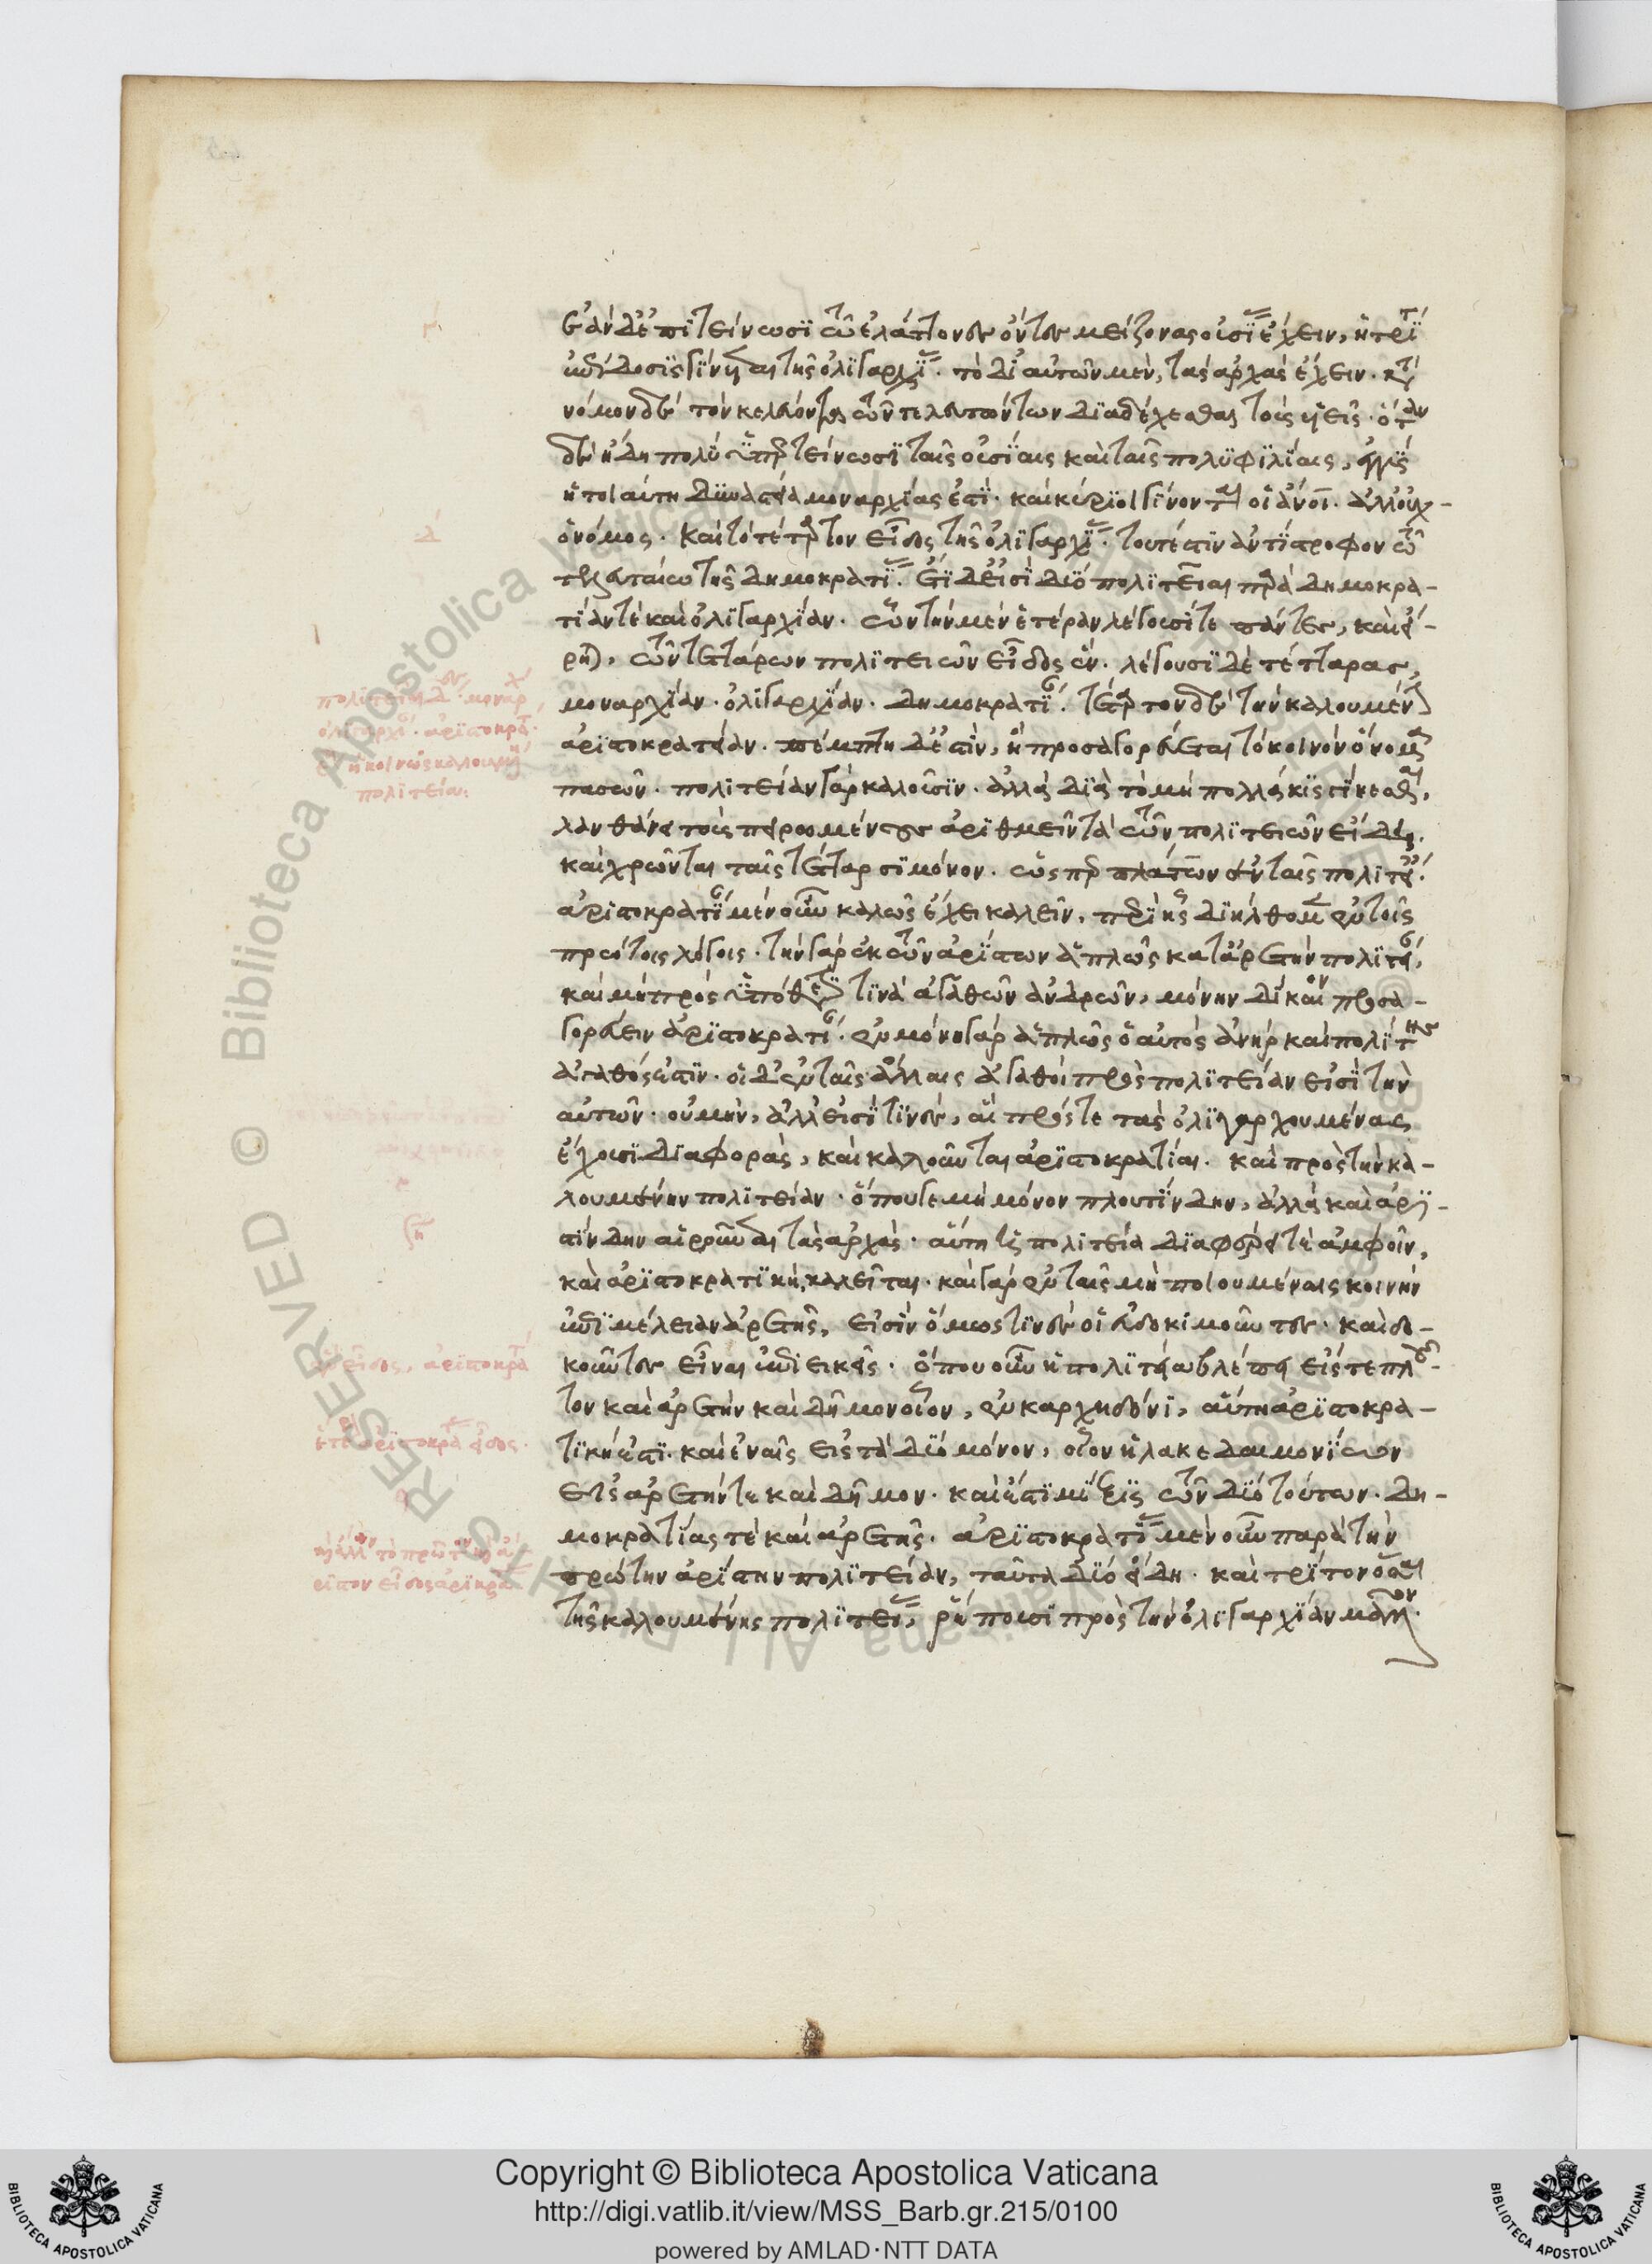 ἐὰν δ' ἐπιτείνωσι τῶ ἐλάττονες ὄντες μείζονας οὐσίας ἔχειν, ἡ τρίτη
ἐπίδοσις γίνεται τῆς ὀλιγαρχίας. τὸ δι' αὐτῶν μὲν, τὰς ἀρχὰς ἔχειν. κατὰ
νόμον δὲ τὸν κελεύοντα τῶν τελευτώντων διαδέχεσθαι τοὺς υἱεῖς. ὅταν
δὲ ἤδη πολὺ ὑπερτείνωσι ταῖς οὐσίαις καὶ ταῖς πολυφιλίαις, ἐγγὺς
ἡ τοιαύτη δυναστεία μοναρχίας ἐστί. καὶ κύριοι γίνονται οἱ ἄνοι. ἀλλ' οὐχ-
ὁ νόμος. καὶ τὸ τέταρτον εἶδος τῆς ὀλιγαρχίας. τοῦτ' ἐστὶν ἀντίστροφον τῶ
τελευταίω τῆς δημοκρατίας. ἔτι δ' εἰσὶ δύο πολιτεῖαι παρὰ δημοκρα-
τίαν τὲ καὶ ὀλιγαρχίαν. ὧν τὴν μὲν ἑτέραν λέγουσί τε πάντες, καὶ εἴ-
ρηται, τῶν τεττάρων πολιτειῶν εἶδος ἕν. λέγουσι δὲ τέτταρας,
μοναρχίαν. ὀλιγαρχίαν. δημοκρατίαν. τέταρτον δὲ τὴν καλουμένην
ἀριστοκρατείαν. πέμπτη δ' ἐστὶν, ἣ προσαγορεύεται τὸ κοινὸν ὄνομα
πασῶν. πολιτείαν γὰρ καλοῦσιν. ἀλλὰ διὰ τὸ μὴ πολλάκις γίνεσθαι,
λανθάνει τοὺς πειρωμένους ἀριθμεῖν τὰ τῶν πολιτειῶν εἴδη.
καὶ χρῶνται ταῖς τέτταρσι μόνον. ὥσπερ πλάτων ἐν ταῖς πολιτείαις.
ἀριστοκρατίαν μὲν οὖν καλῶς ἔχει καλεῖν, περὶ ἧς διήλθομεν ἐν τοῖς
πρώτοις λόγοις. τὴν γὰρ ἐκ τῶν ἀρίστων ἁπλῶς κατ' ἀρετὴν πολιτείαν,
καὶ μὴ πρὸς ὑπόθεσιν τινὰ ἀγαθῶν ἀνδρῶν, μόνην δίκαιον προσα-
γορεύειν ἀριστοκρατίαν. ἐν μόνη γὰρ ἁπλῶς ὁ αὐτὸς ἀνὴρ καὶ πολίτης
ἀγαθός ἐστιν. οἱ δ' ἐν ταῖς ἄλλαις ἀγαθοὶ πρὸς πολιτείαν εἰσὶ τὴν
αὐτῶν. οὐ μὴν, ἀλλ' εἰσί τινες, αἳ πρός τε τὰς ὀλιγαρχουμένας
ἔχουσι διαφορὰς, καὶ καλοῦνται ἀριστοκρατίαι. καὶ πρὸς τὴν κα-
λουμένην πολιτείαν. ὅπου γε μὴ μόνον πλουτίνδην, ἀλλὰ καὶ ἀρι-
στίνδην αἱροῦνται τὰς ἀρχάς. αὕτη ἡ πολιτεία διαφέρει τὲ ἀμφοῖν,
καὶ ἀριστοκρατικὴ καλεῖται. καὶ γὰρ ἐν ταῖς μὴ ποιουμέναις κοινὴν
ἐπιμέλειαν ἀρετῆς, εἰσὶν ὅμως τινὲς οἱ εὐδοκιμοῦντες. καὶ δο-
κοῦντες εἶναι ἐπιεικεῖς. ὅπου οὖν ἡ πολιτεία βλέπει εἴς τε πλοῦ-
τον καὶ ἀρετὴν καὶ δῆμον οἷον, ἐν καρχηδόνι, αὕτη ἀριστοκρα-
τική ἐστι. καὶ ἐν αἷς εἰς τὰ δύο μόνον, οἷον ἡ λακεδαιμονίων
εἰς ἀρετήν τε καὶ δῆμον. καὶ ἔστι μίξις τῶν δύο τούτων. δη-
μοκρατίας τὲ καὶ ἀρετῆς. ἀριστοκρατίας μὲν οὖν παρὰ τὴν
πρώτην ἀρίστην πολιτείαν, ταῦτα δύο εἴδη. καὶ τρίτον ὅσαι
τῆς καλουμένης πολιτείας, ῥέπουσι πρὸς τὴν ὀλιγαρχίαν μᾶλλον.
πολιτεία
πολιτεία
Copyright © Biblioteca Apostolica Vaticana
http://digi.vatlib.it/view/MSS_Barb.gr.215/0100
powered by AMLAD·NTT DATA
BIBLIOTECA APOSTOLICA VATICANA
BIBLIOTECA APOSTOLICA VATICANA